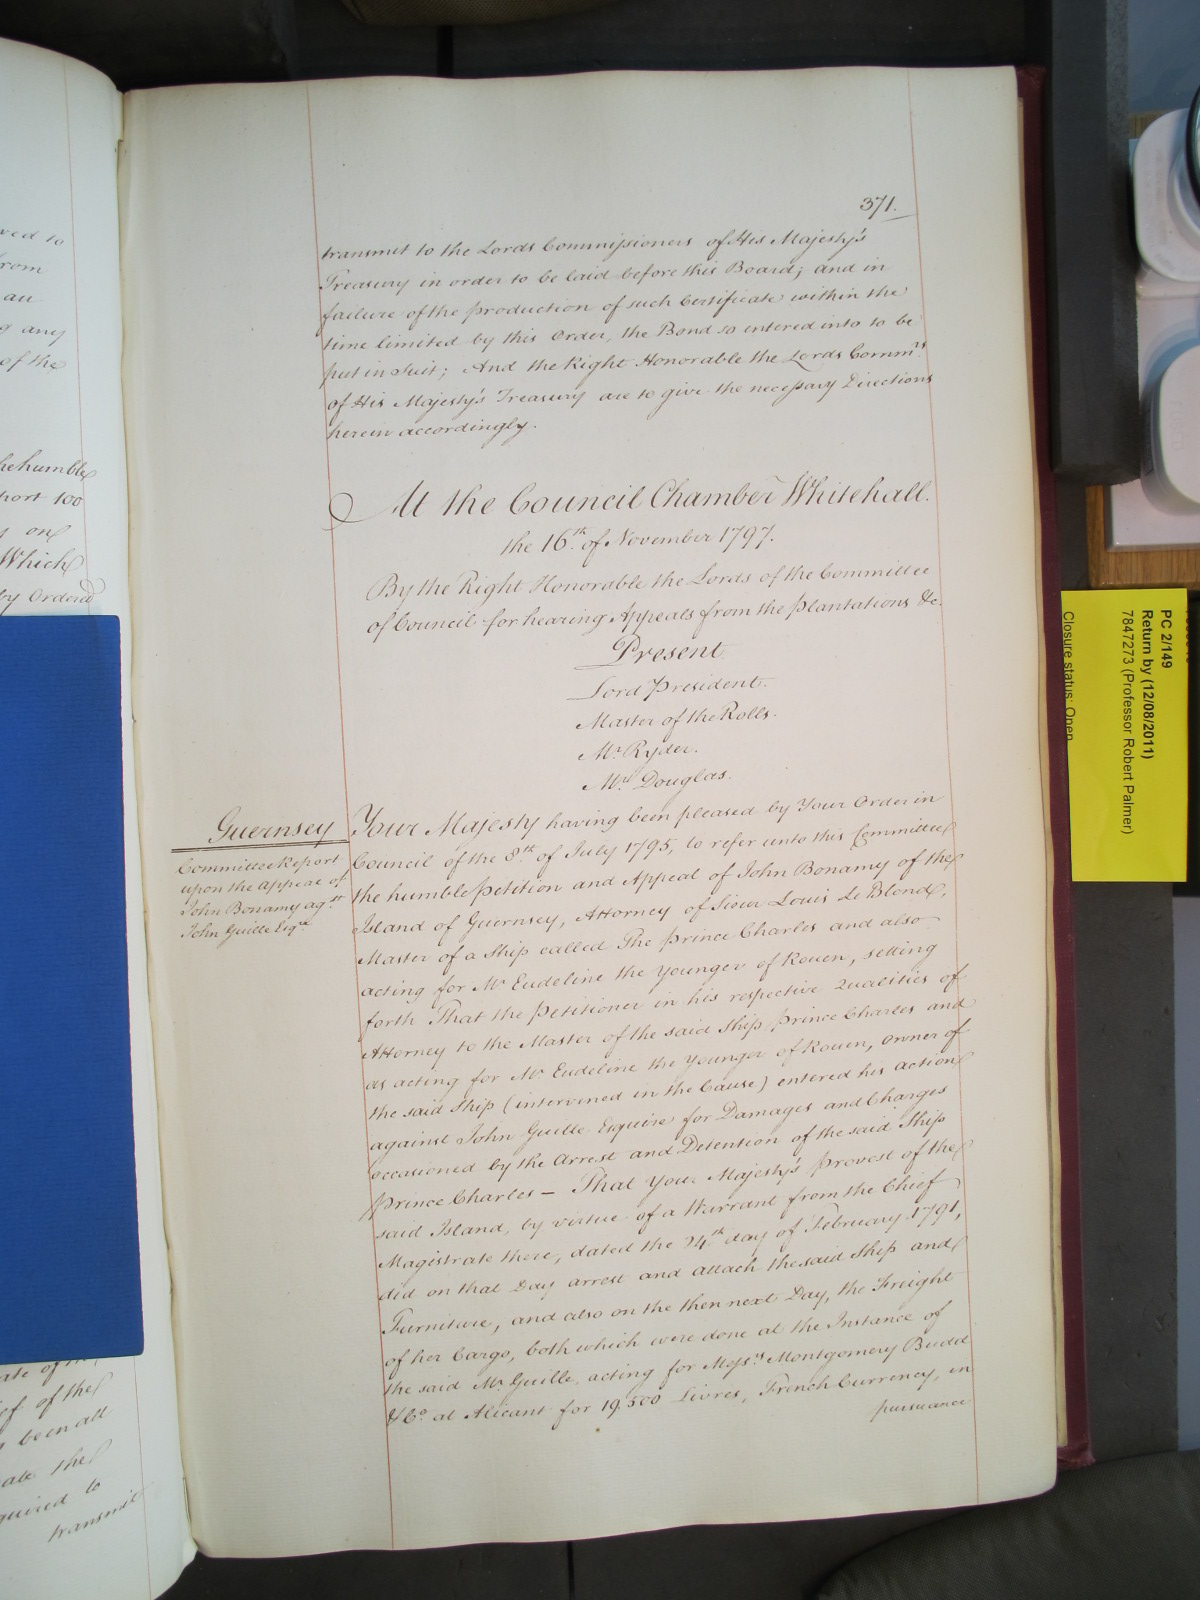 371.
transmit to the Lords Commissioners of His Majesty's
Treasury in order to be laid before this Board; and in
failure of the production of such Certificate within the
time limited by this Order, the Bond so entered into to be
put in Suit; And the Right Honorable the Lords Commrs.
of His Majesty's Treasury are to give the necessary Directions
herein accordingly.
At the Council Chamber Whitehall.
the 16th of November 1797.
By the Right Honorable the Lords of the Committee
of Council for hearing Appeals from the Plantations &c.
Present
Lord President.
Master of the Rolls.
Mr. Ryder.
Mr. Douglas.
Guernsey
Committee Report
upon the appeal of
John Bonamy agst.
John Guille Esqre.
Your Majesty having been pleased by Your Order in
Council of the 8th of July 1795, to refer unto this Committee
the humble Petition and Appeal of John Bonamy of the
Island of Guernsey, Attorney of Sieur Louis Le Blond,
Master of a Ship called The Prince Charles and also
acting for Mr. Eudeline the Younger of Rouen, setting
forth That the Petitioner in his respective Qualities of
Attorney to the Master of the said Ship Prince Charles and
as acting for Mr. Eudeline the Younger of Rouen, owner of
the said Ship (intervened in the Cause) entered his action
against John Guille Esquire for Damages and Charges
occasioned by the Arrest and Detention of the said Ship
Prince Charles — That Your Majesty's Provost of the
said Island, by virtue of a Warrant from the Chief
Magistrate there, dated the 24th day of February 1791,
did on that Day arrest and attach the said Ship and
Furniture, and also on the then next Day, the Freight
of her Cargo, both which were done at the Instance of
the said Mr. Guille, acting for Messrs. Montgomery Budd
& Co. at Alicant for 19.500 Livres, French Currency, in
pursuance
ved to
rom
au
g any
of the
he humble
port 100
on
Which
by Ordered
ate of the
ef of the
been all
ate the
quired to
transmit
PC 2/149
Return by (12/08/2011)
7847273 (Professor Robert Palmer)
Closure status: Open